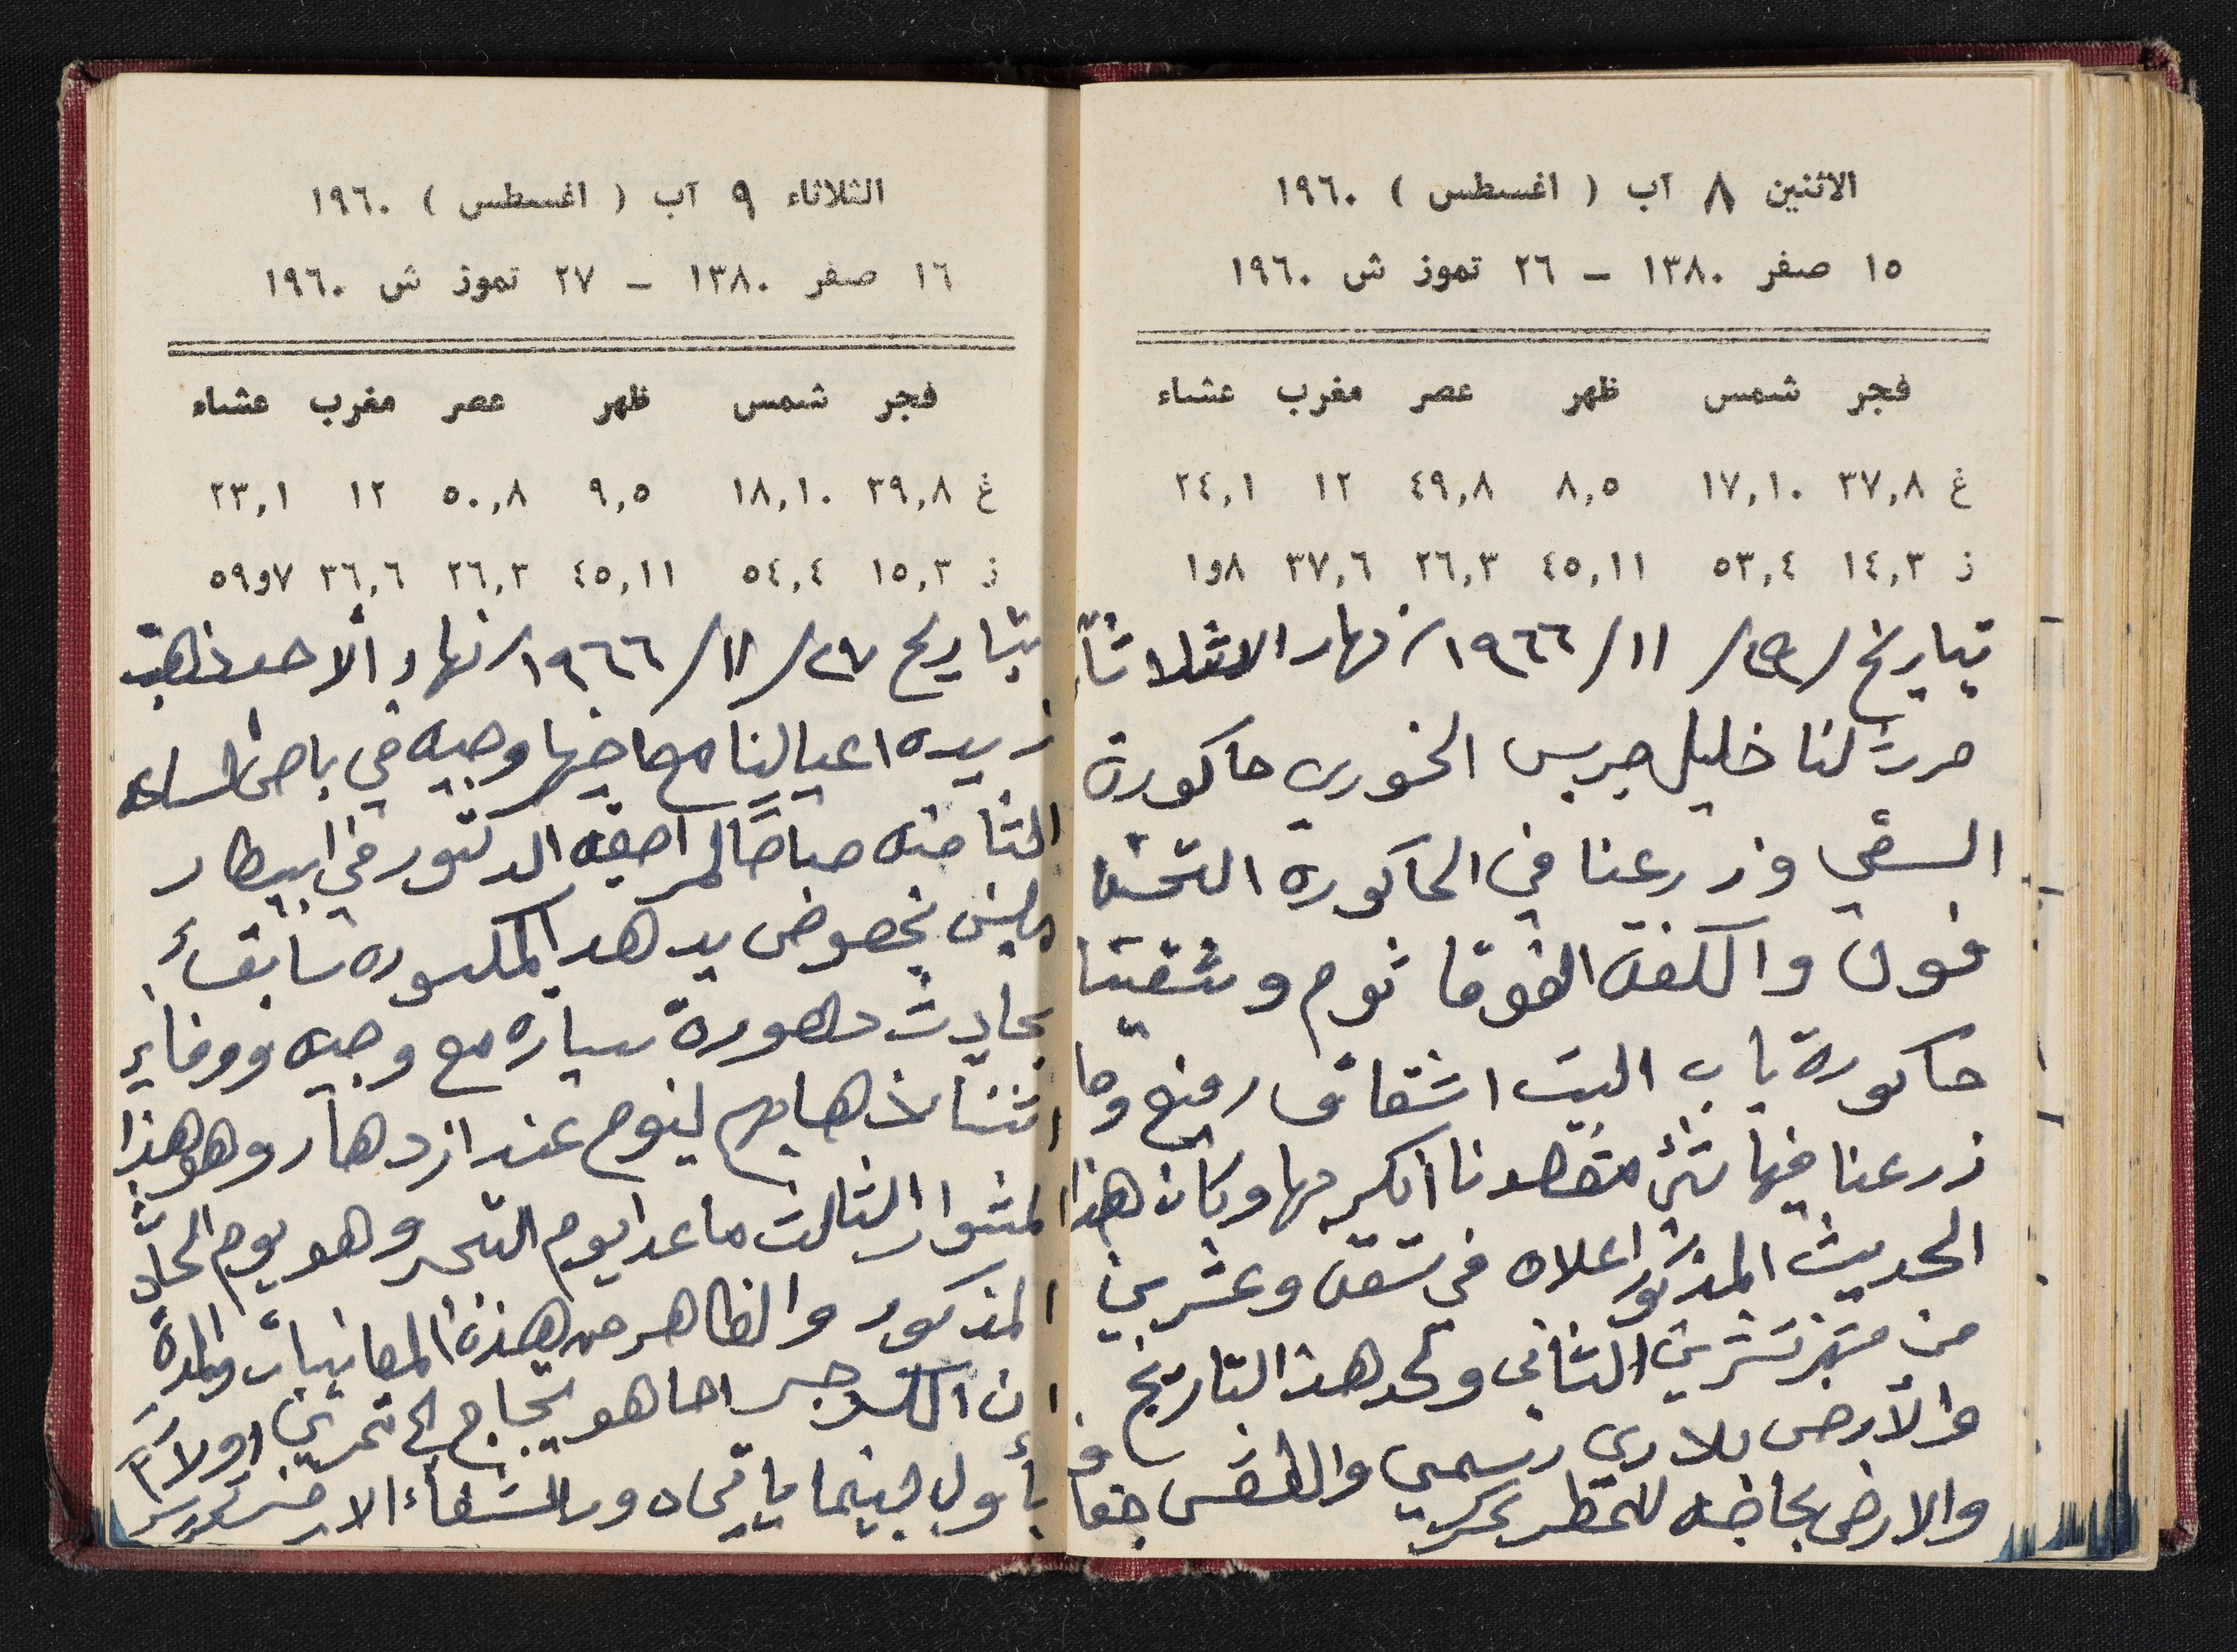 الاثنين ٨ آب ( اغسطس ) ١٩٦٠
١٥ صفر ١٣٨٠ – ٢٦ تموز ش ١٩٦٠
فجر شمس ظهر عصر مغرب عشاء
غ ٣٧,٨ ١٧,١٠ ٨,٥ ٤٩,٨ ١٢ ٢٤,١
ز ١٤,٣ ٥٣,٤ ٤٥,١١ ٢٦,٣ ٣٧,٦ ٨و١
بتاريخ / ٢٩/ ١١/ ١٩٦٦/ نهار الاثلاثاً
حرث لنا خليل جريس الخوري حاكورة
السقي وزرعنا في الحاكوره التحتا
فول والكفة الفوقا ثوم وشقينا
حاكورة باب البيت اشقاق رفيع وما
زرعنا فيها شئ مقصدنا انكربها وكان هذا
الحديث المذكور اعلاه في تسعة وعشرين
من شهر تشرين الثاني ولحد هذا التاريخ
والأرض بلا ري رسمي والطقس جفاف
والارض بحاضه للمطر
الثلاثاء ٩ آب ( اغسطس ) ١٩٦٠
١٦ صفر ١٣٨٠ – ٢٧ تموز ش ١٩٦٠
فجر شمس ظهر عصر مغرب عشاء
غ ٣٩,٨ ١٨,١٠ ٩,٥ ٥٠,٨ ١٢ ٢٣,١
ز ١٥,٣ ٥٤,٤ ٤٥,١١ ٢٦,٣ ٣٦,٦ ٧و٥٩
بتاريخ ٢٧/ ١١/ ١٩٦٦/ نهار ألاحد ذهبت
زبيده اعيالنا مع اخيها وجيه في باص الساعه
الثامنه صباحاً لمراجعة الدكتور في ابيطار
بخصوص يد هدى المكسوره سابقاً
بحادث دهورة سياره مع وجيه ووفاء
اثنا ذهابهم لنوم عند ازدهار وهو هذا
المشوار الثالث ماعدا يوم التجبر وهو يوم الحادث
المذكور والظاهر من هذه المعاينات والمدة
ان الكسر جبر احا هو يحتاج الى تمرين اولاً
بأول بينما يأتي دور الشفاء